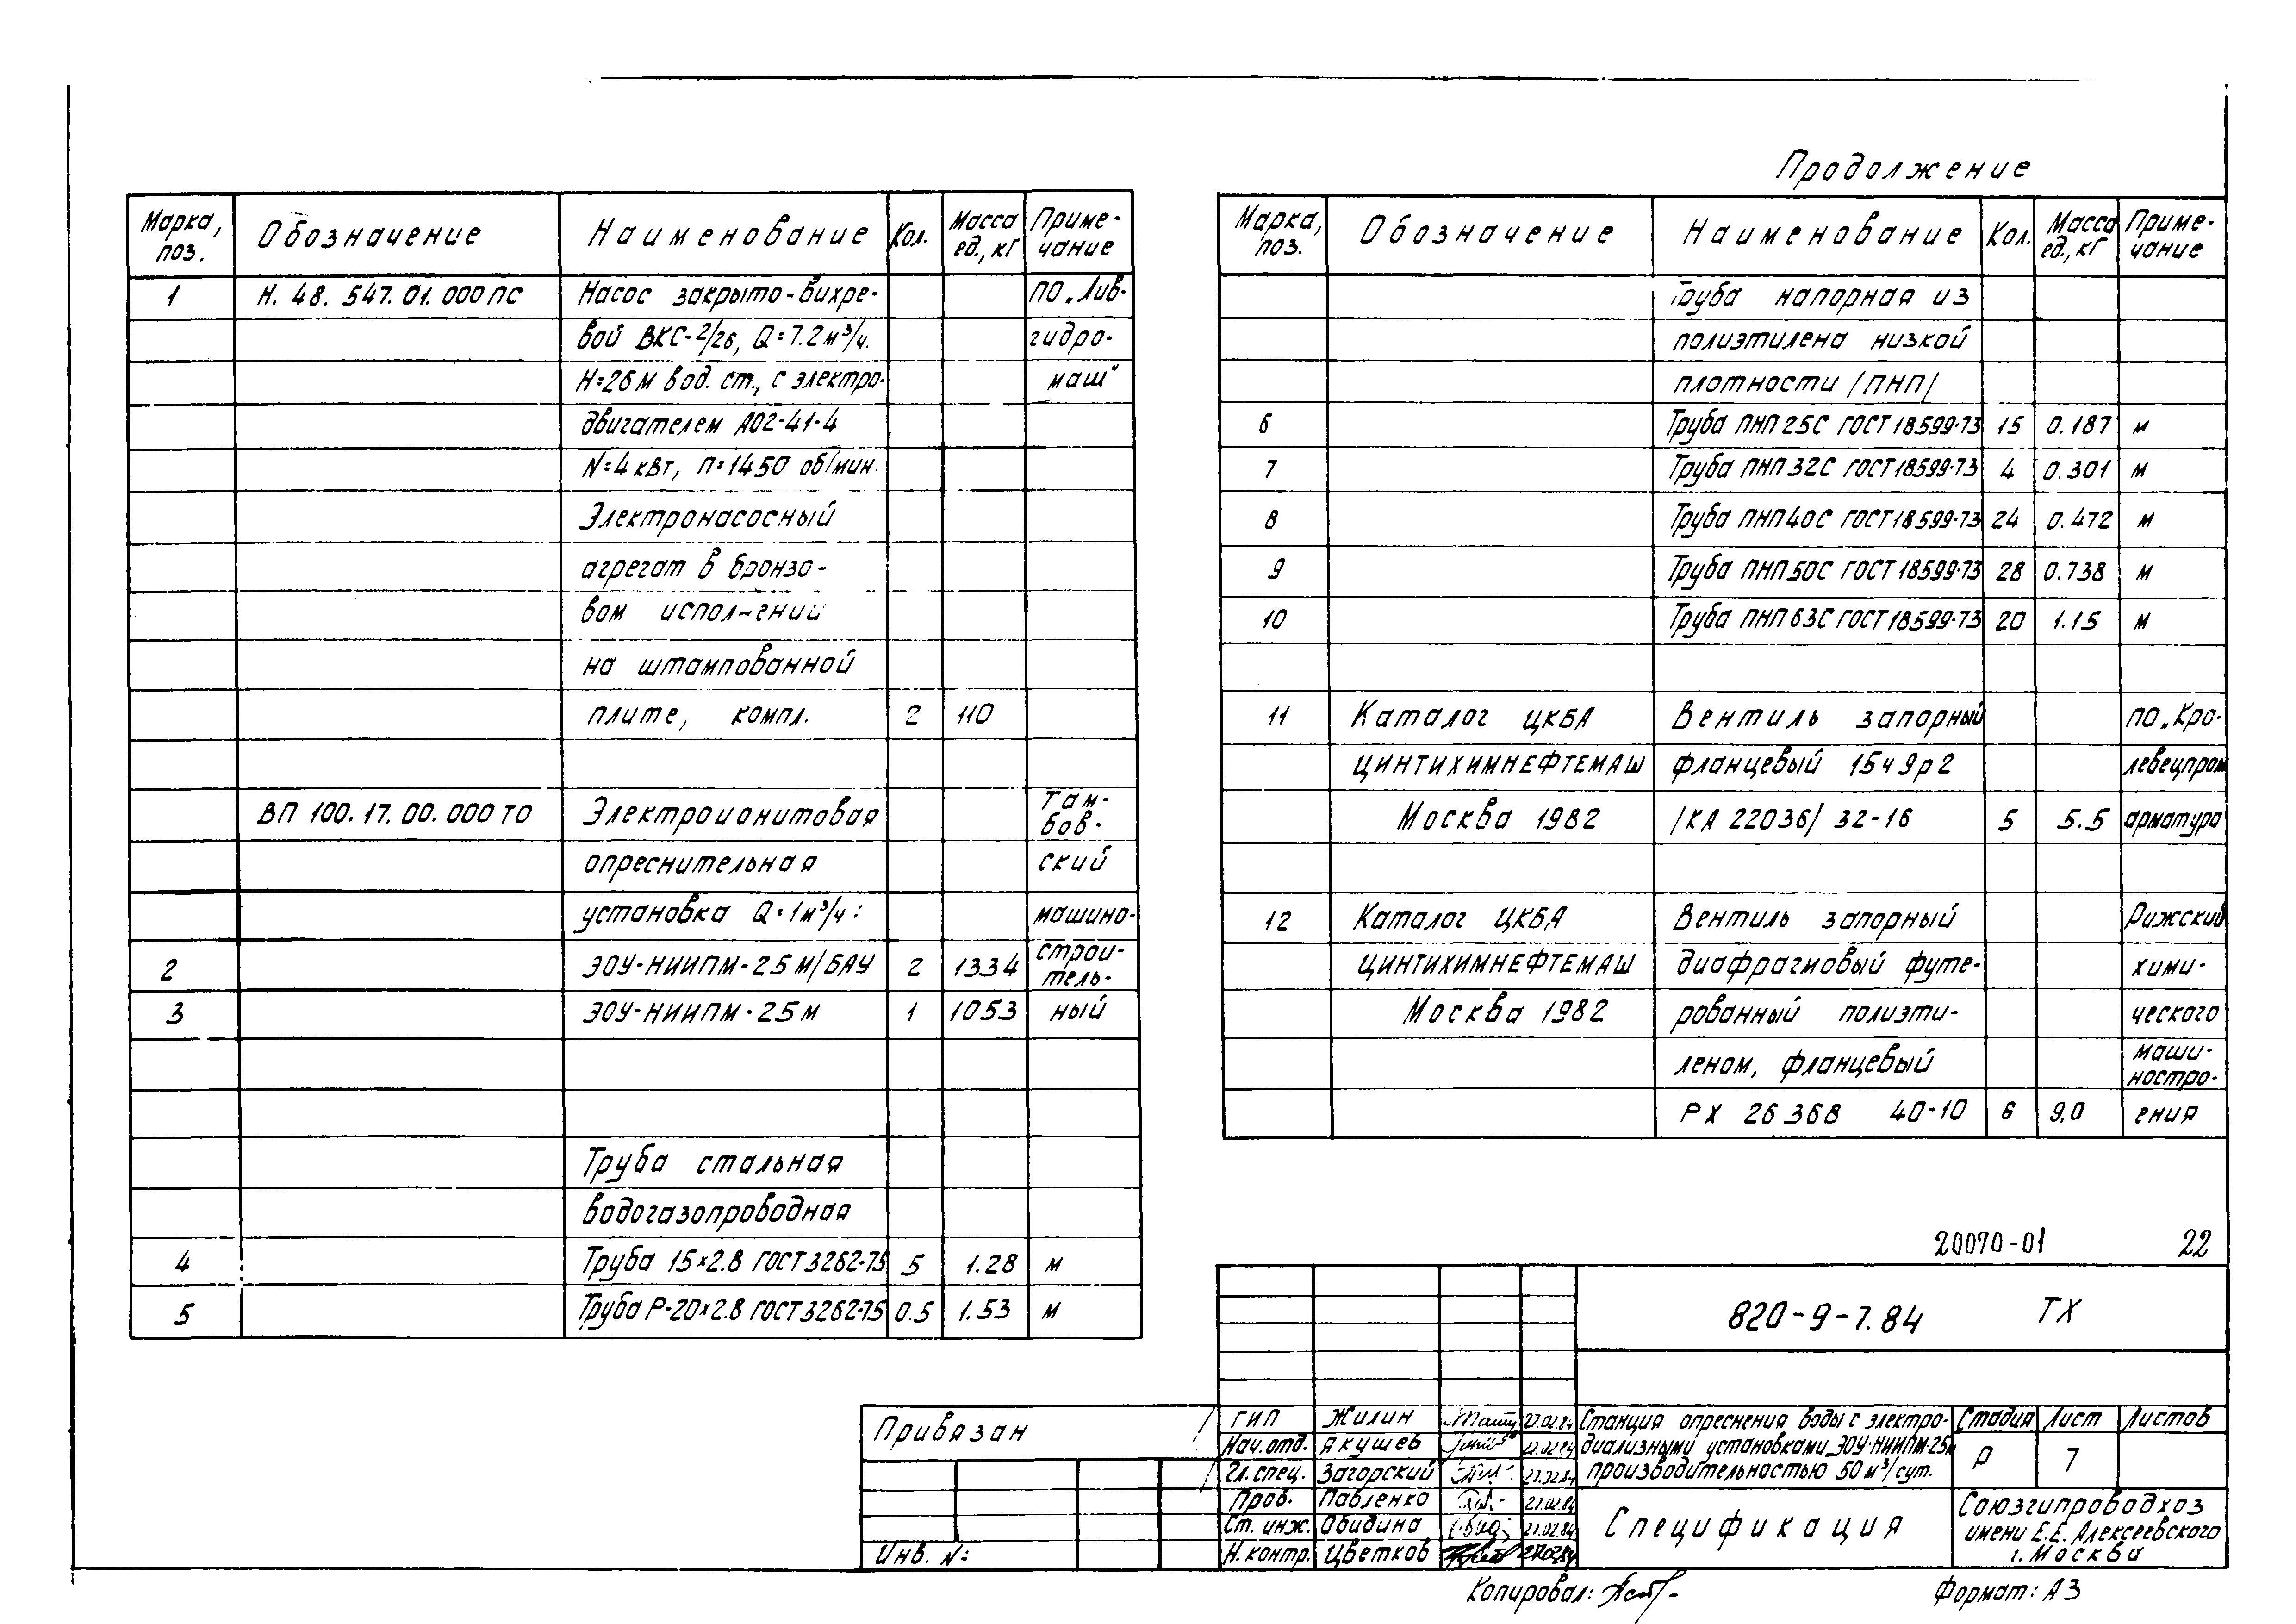 Продолжение
Марка, поз. Обозначение Наименование Кол. Масса ед., кг Примечание
1 Н. 48. 547. 01. 000 ПС Насос закрыто-вихре- ПО „Лив-
вой ВКС-2/26, Q=7.2 м³/ч. гидро-
Н=26 м вод. ст., с электро- маш"
двигателем АО2-41-4
N=4 кВт, п=1450 об/мин.
Электронасосный
агрегат в бронзо-
вом исполнении
на штампованной
плите, компл. 2 110
ВП 100. 17. 00. 000 ТО Электроионитовая там-бов-
опреснительная ский
установка Q=1 м³/ч: машино-
2 ЭОУ-НИИПМ-25 М/БАУ 2 1334 строи-тель-
3 ЭОУ-НИИПМ-25 М 1 1053 ный
Труба стальная
водогазопроводная
4 Труба 15×2.8 ГОСТ 3262-75 5 1.28 м
5 Труба Р-20×2.8 ГОСТ 3262-75 0.5 1.53 м
Марка, поз. Обозначение Наименование Кол. Масса ед., кг Примечание
Труба напорная из
полиэтилена низкой
плотности /ПНП/
6 Труба ПНП 25С ГОСТ 18599-73 15 0.187 м
7 Труба ПНП 32С ГОСТ 18599-73 4 0.301 м
8 Труба ПНП 40С ГОСТ 18599-73 24 0.472 м
9 Труба ПНП 50С ГОСТ 18599-73 28 0.738 м
10 Труба ПНП 63С ГОСТ 18599-73 20 1.15 м
11 Каталог ЦКБА Вентиль запорный ПО „Кро-
ЦИНТИХИМНЕФТЕМАШ фланцевый 15ч9р2 левецпром
Москва 1982 /КА 22036/ 32-16 5 5.5 арматура
12 Каталог ЦКБА Вентиль запорный Рижский
ЦИНТИХИМНЕФТЕМАШ диафрагмовый футе- хими-
Москва 1982 рованный полиэти- ческого
леном, фланцевый маши-ностро-
РХ 26368 40-10 6 9,0 ения
20070-01 22
820-9-7.84 ТХ
Привязан
Инв. №:
ГИП Жилин 27.02.84
Нач.отд. Якушев 27.02.84
Гл.спец. Загорский 27.02.84
Пров. Павленко 27.02.84
Ст. инж. Обидина 27.02.84
Н.контр. Цветков 27.02.84
Станция опреснения воды с электро-
диализными установками ЭОУ-НИИПМ-25м
производительностью 50 м³/сут.
Стадия Лист Листов
Р 7
Спецификация
Союзгипроводхоз
имени Е.Е. Алексеевского
г. Москва
Копировал: Формат: А3